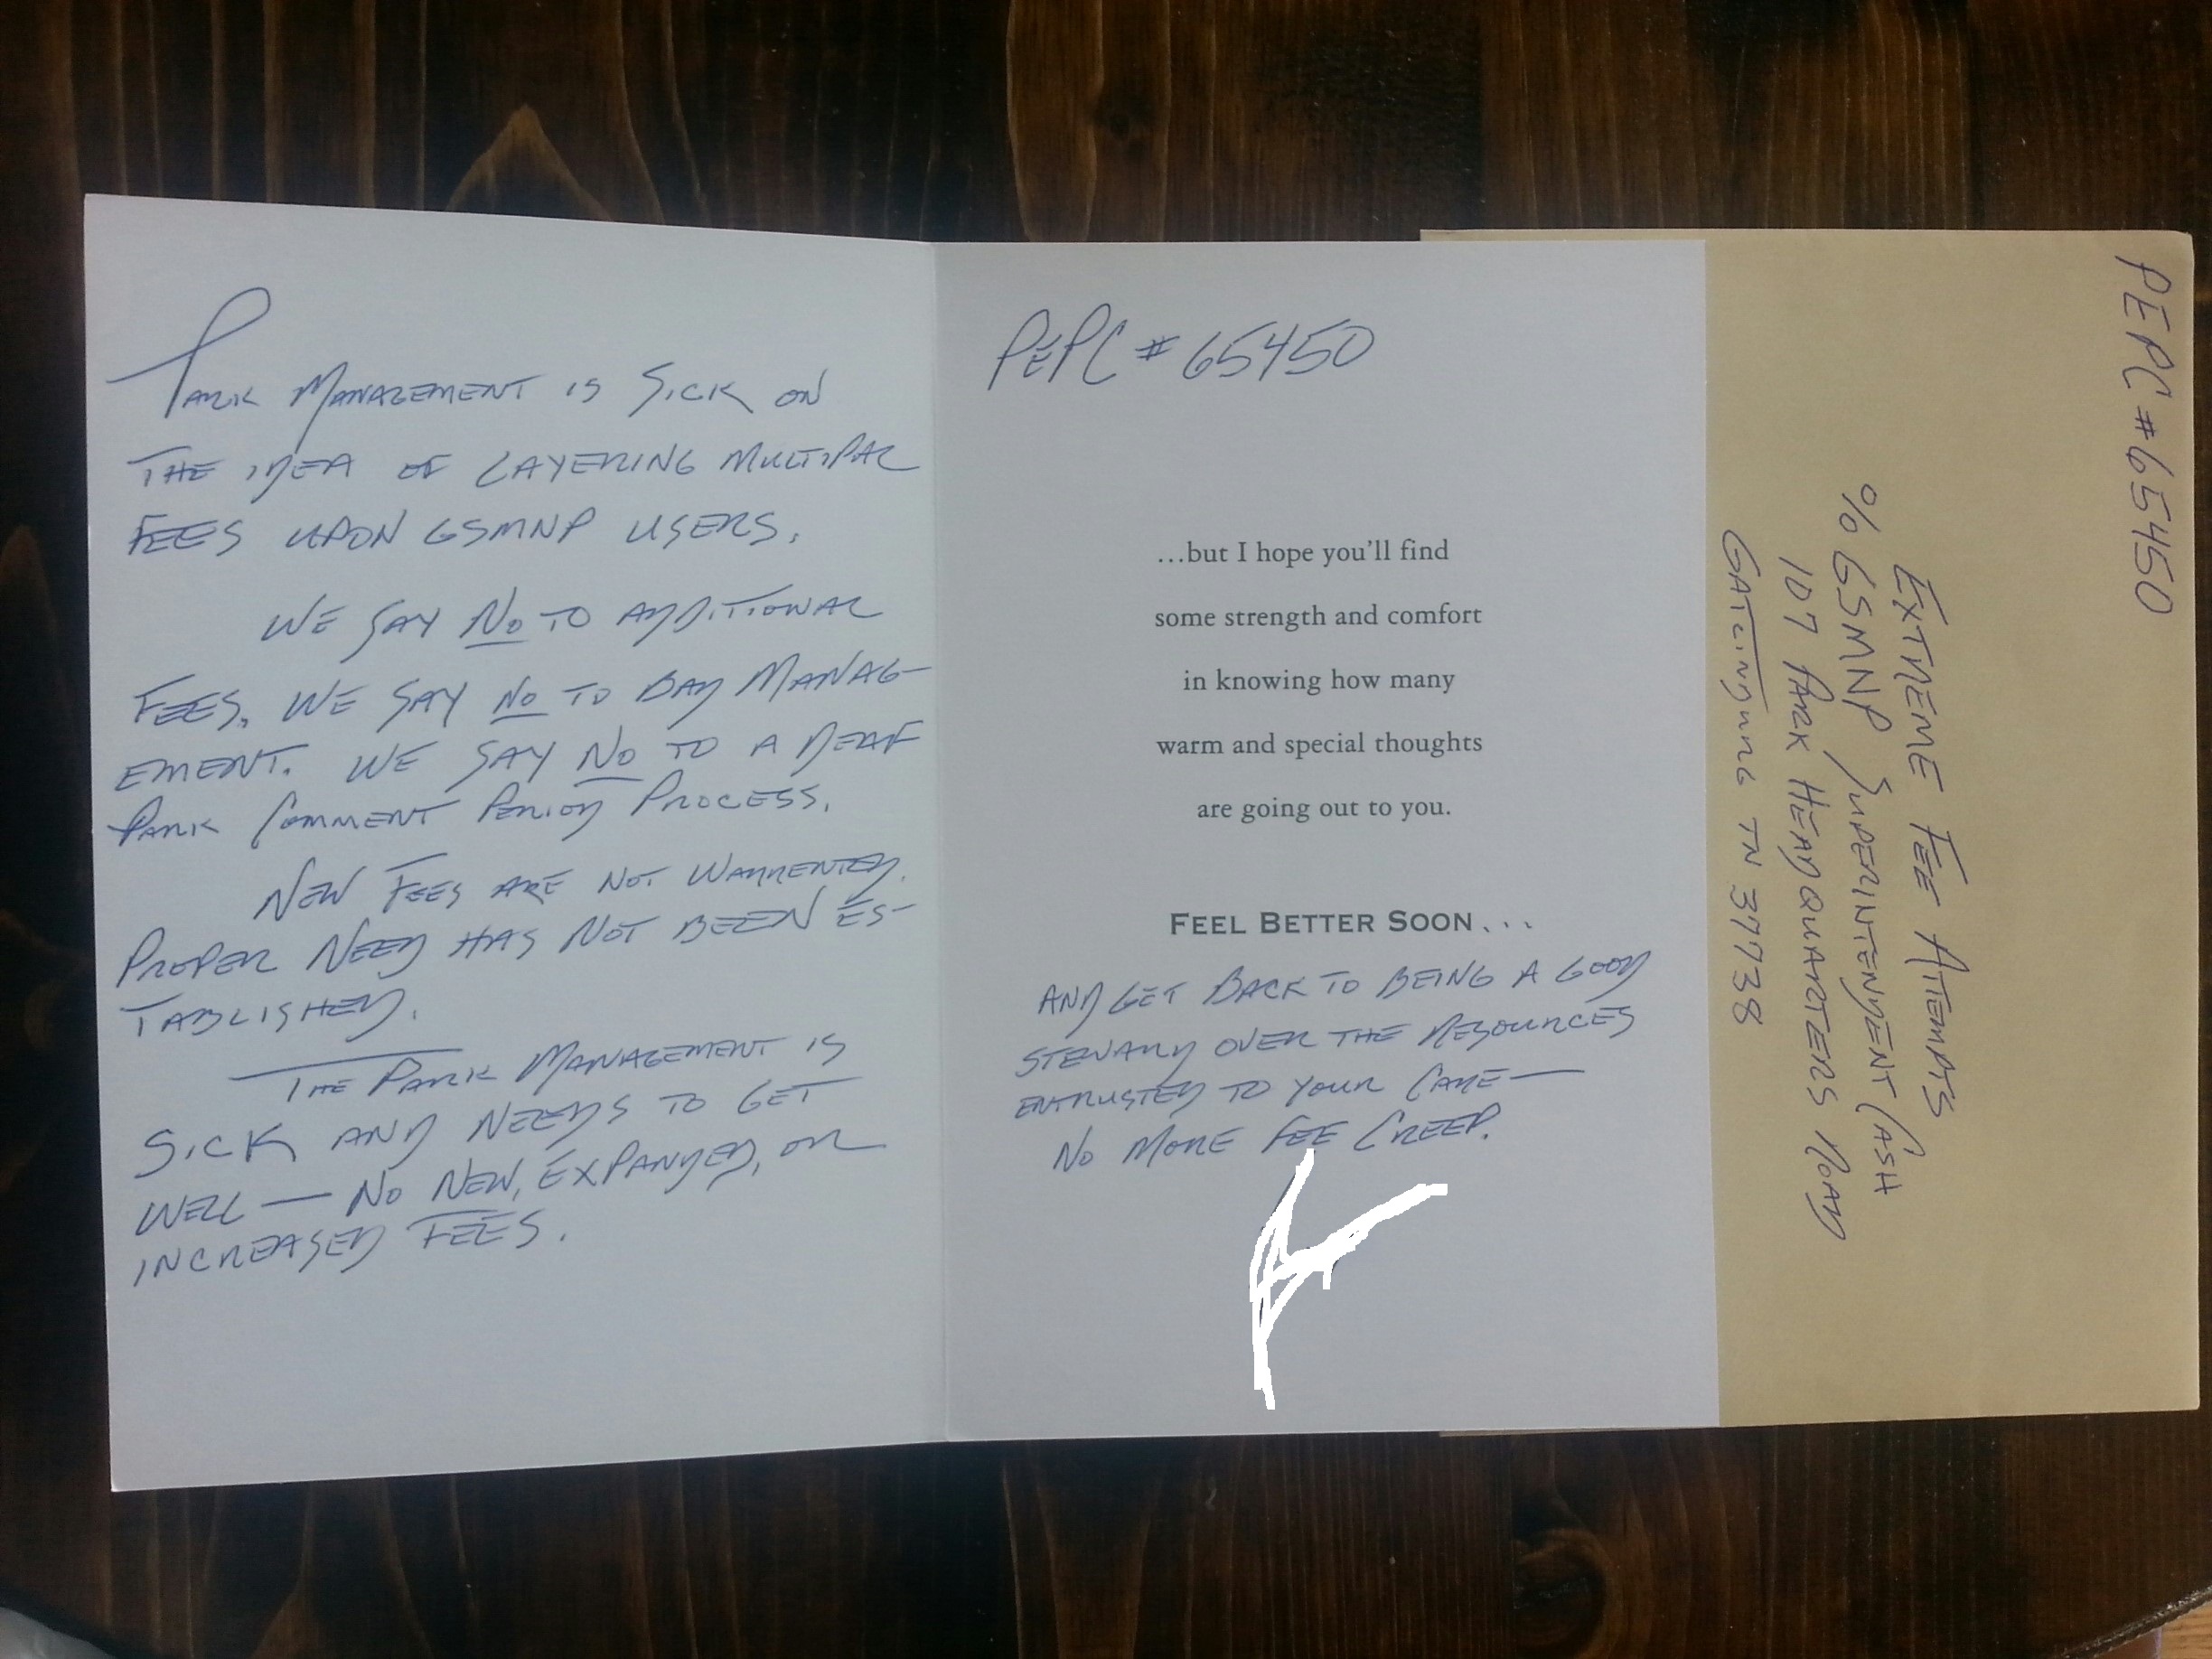 PARK MANAGEMENT IS SICK ON
THE IDEA OF LAYERING MULTIPAL
FEES UPON GSMNP USERS.
WE SAY NO TO ADDITIONAL
FEES. WE SAY NO TO BAD MANAG-
EMENT. WE SAY NO TO A DEAF
PARK COMMENT PERIOD PROCESS.
NEW FEES ARE NOT WARRENTED.
PROPER NEED HAS NOT BEEN ES-
TABLISHED.
THE PARK MANAGEMENT IS
SICK AND NEEDS TO GET
WELL — NO NEW, EXPANDED, OR
INCREASED FEES.
PEPC # 65450
...but I hope you'll find
some strength and comfort
in knowing how many
warm and special thoughts
are going out to you.
FEEL BETTER SOON...
AND GET BACK TO BEING A GOOD
STEWARD OVER THE RESOURCES
ENTRUSTED TO YOUR CARE —
NO MORE FEE CREEP.
PEPC # 65450
EXTREME FEE ATTEMPTS
% GSMNP SUPERINTENDENT CASH
107 PARK HEADQUARTERS ROAD
GATLINBURG TN 37738